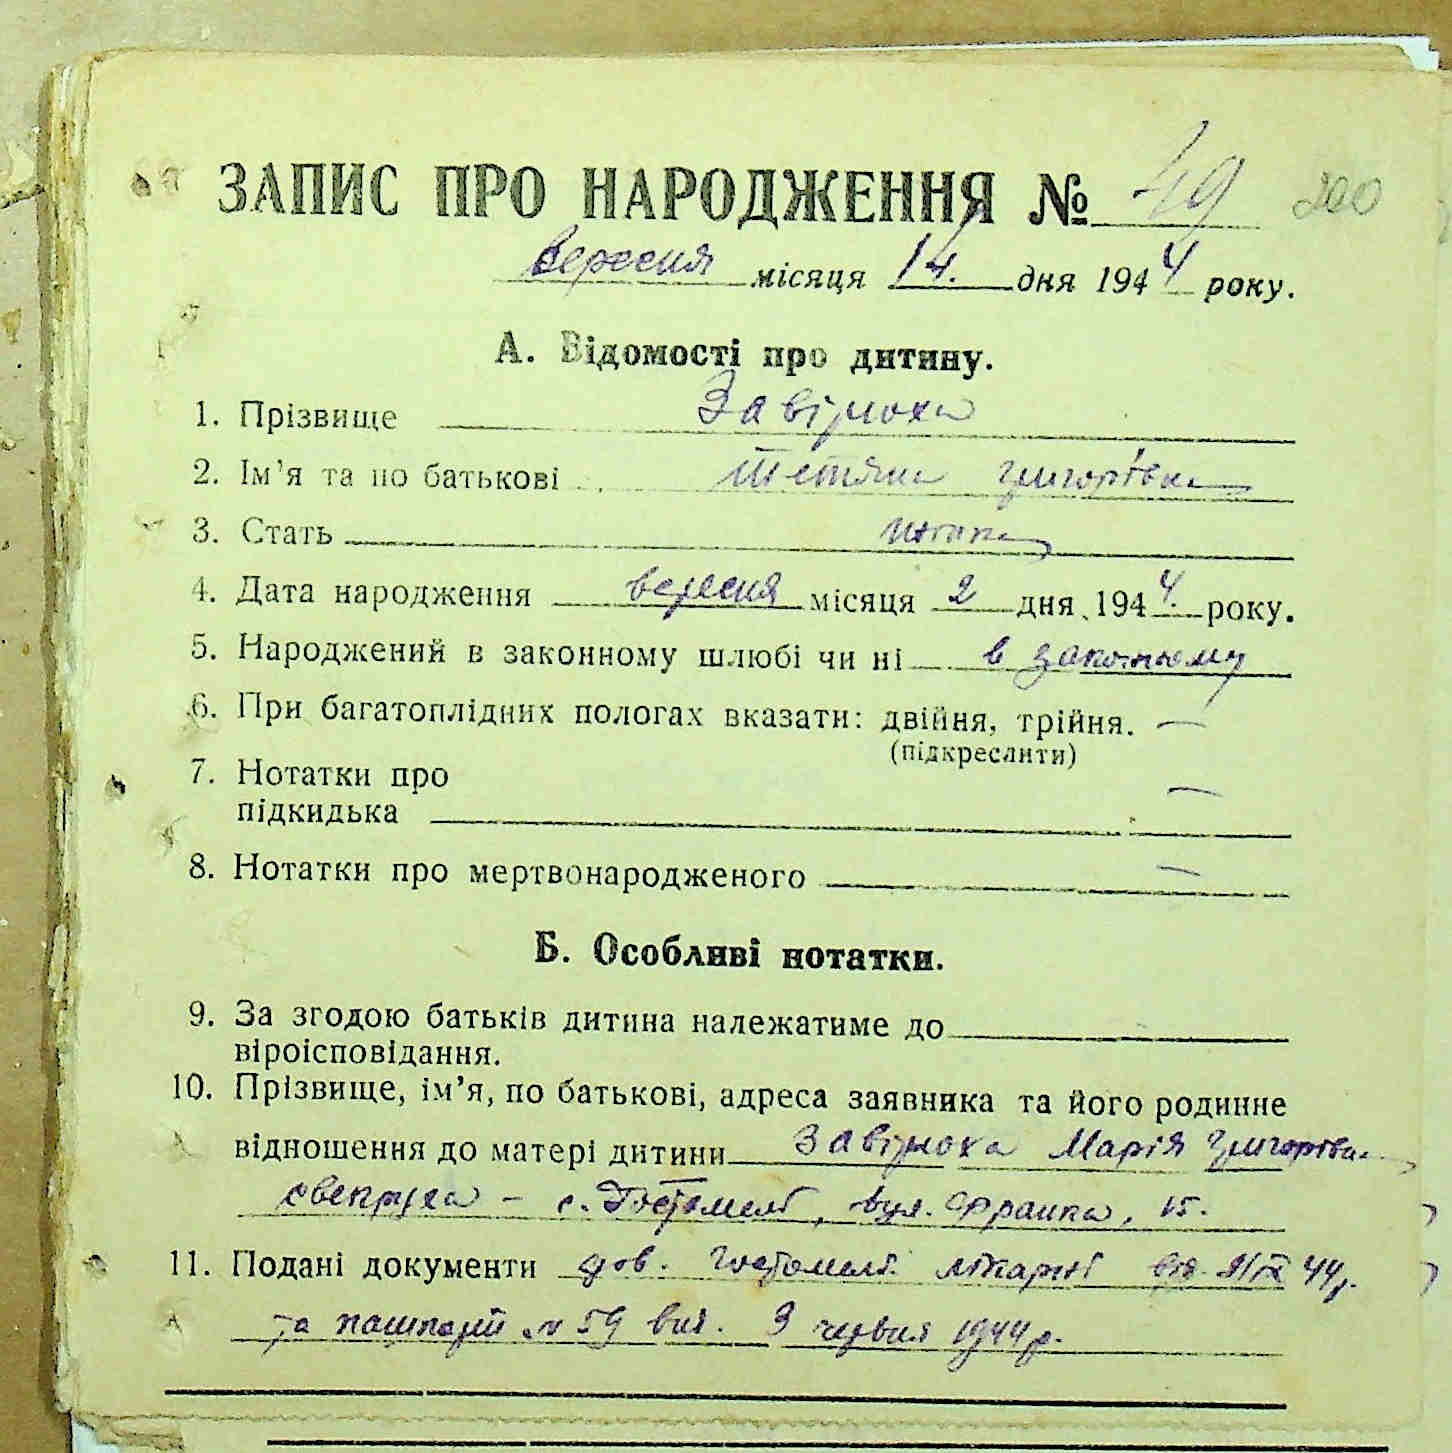 ЗАПИС ПРО НАРОДЖЕННЯ № 49 200
вересня місяця 14. дня 1944 року.
А. Відомості про дитину.
1. Прізвище Завірюха
2. Ім'я та по батькові Тетяна Григорівна
3. Стать жіноча
4. Дата народження вересня місяця 2 дня 1944. року.
5. Народжений в законному шлюбі чи ні в законному
6. При багатоплідних пологах вказати: двійня, трійня. —
(підкреслити)
7. Нотатки про —
підкидька
8. Нотатки про мертвонародженого —
Б. Особливі нотатки.
9. За згодою батьків дитина належатиме до
віроісповідання.
10. Прізвище, ім'я, по батькові, адреса заявника та його родинне
відношення до матері дитини Завірюха Марія Григорівна
свекруха - с. Гостомель, вул. Франка, 15.
11. Подані документи дов. Гостомел. лікарні від /IX 44р.
та пашпорт № 59 від. 3 червня 1944 р.